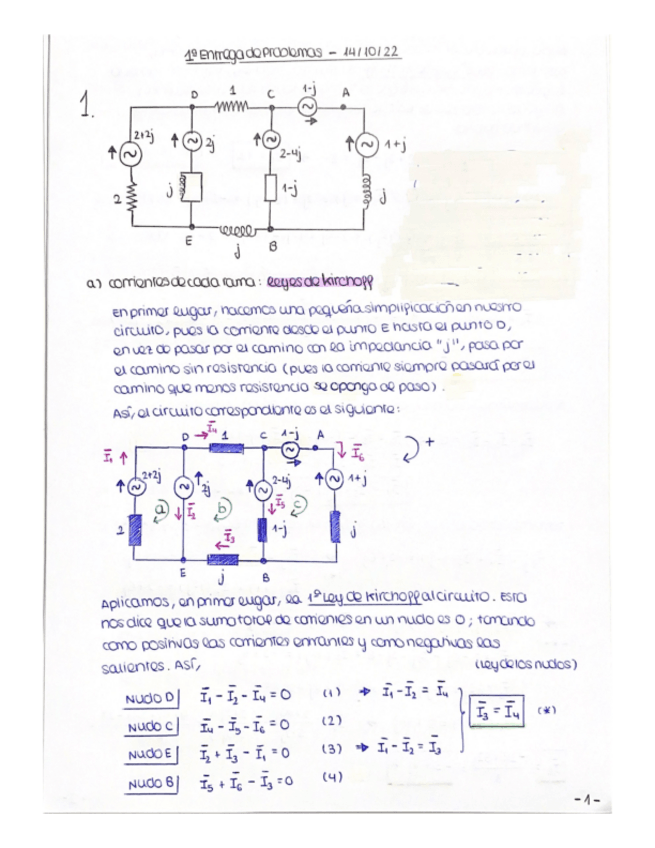 1º Entrega de Problemas - 14/10/22
1.
D 1 C 1-j A
2+2j 2j 2-4j 1+j
2 j 1-j j
E j B
a) corrientes de cada rama: leyes de kirchoff
En primer lugar, hacemos una pequeña simplificación en nuestro
circuito, pues la corriente desde el punto E hasta el punto D,
en vez de pasar por el camino con la impedancia "j", pasa por
el camino sin resistencia (pues la corriente siempre pasará por el
camino que menos resistencia se oponga al paso).
Así, el circuito correspondiente es el siguiente:
D I̅₄ 1 C 1-j A
I̅₁ I̅₆ +
2+2j 2j 2-4j 1+j
a I̅₂ b I̅₅ c
2 I̅₃ 1-j j
E j B
Aplicamos, en primer lugar, la 1º Ley de Kirchoff al circuito. Esta
nos dice que la suma total de corrientes en un nudo es 0; tomando
como positivas las corrientes entrantes y como negativas las
salientes. Así, (Ley de los nudos)
Nudo D I̅₁ - I̅₂ - I̅₄ = 0 (1) ⇒ I̅₁ - I̅₂ = I̅₄
Nudo C I̅₄ - I̅₅ - I̅₆ = 0 (2) I̅₃ = I̅₄ (*)
Nudo E I̅₂ + I̅₃ - I̅₁ = 0 (3) ⇒ I̅₁ - I̅₂ = I̅₃
Nudo B I̅₅ + I̅₆ - I̅₃ = 0 (4)
-1-